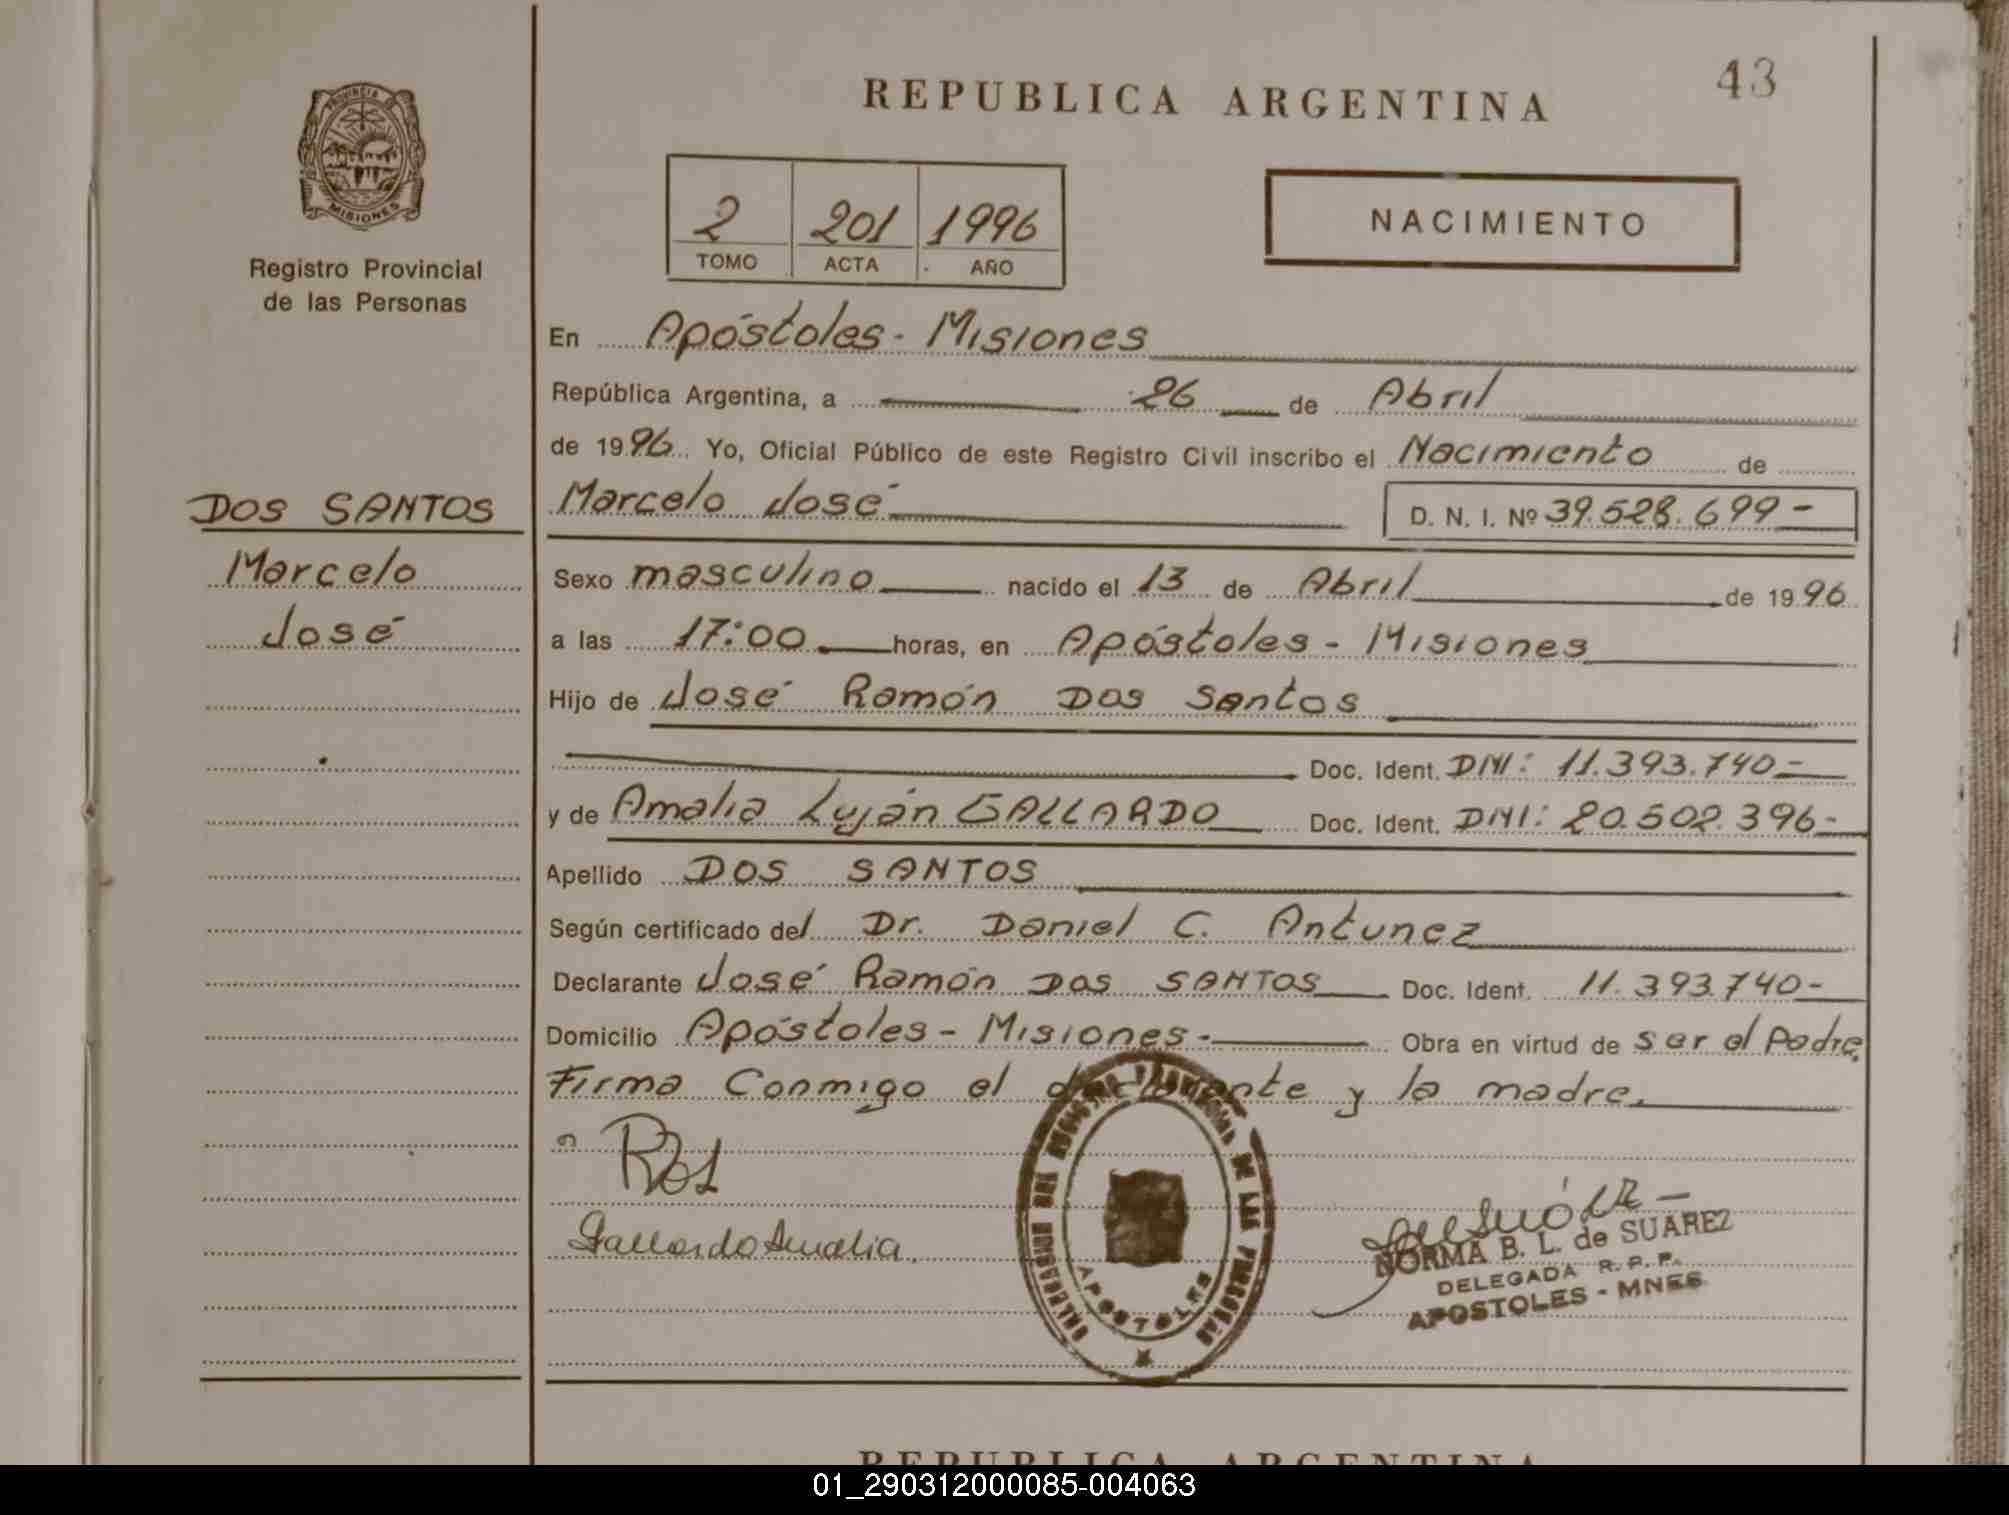 43
REPUBLICA ARGENTINA
PROVINCIA DE
MISIONES
Registro Provincial
de las Personas
2 201 1996
TOMO ACTA AÑO
NACIMIENTO
En Apóstoles - Misiones
República Argentina, a 26 de Abril
de 1996 Yo, Oficial Público de este Registro Civil inscribo el Nacimiento de
DOS SANTOS
Marcelo
José
Marcelo José D. N. I. Nº 39.528.699-
Sexo masculino nacido el 13 de Abril de 1996
a las 17:00 horas, en Apóstoles - Misiones
Hijo de José Ramón Dos Santos
Doc. Ident. DNI: 11.393.740-
y de Amalia Luján GALLARDO Doc. Ident. DNI: 20.502.396-
Apellido DOS SANTOS
Según certificado del Dr. Daniel C. Antunez
Declarante José Ramón Dos SANTOS Doc. Ident. 11.393.740-
Domicilio Apóstoles - Misiones.- Obra en virtud de ser el padre.
Firma Conmigo el declarante y la madre.
Gallardo Amalia
DEL REGISTRO PROVINCIAL DE LAS PERSONAS
APOSTOLES
NORMA B. L. de SUAREZ
DELEGADA R. P. P.
APOSTOLES - MNES
REPUBLICA ARGENTINA
01_290312000085-004063